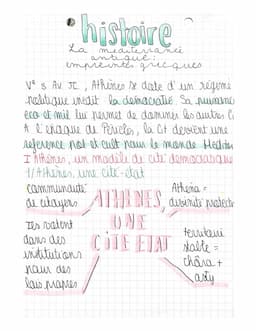 histoire
La méditerranée
antique :
empreintes grecques
Vᵉ s Av JC, Athènes se dote d'un régime
politique inédit la démocratie. Sa puissance
eco et mil lui permet de dominer les autres C.
A l'époque de Périclès, la C+ devient une
référence pol et cult pour le monde
I Athènes, un modèle de cité démocratique
1/Athènes, une cité-état
communauté
de citoyens
Ils votent
dans des
institutions
pour des
lois propres
ATHÈNES,
UNE
CITÉ ETAT
Athéna =
divinité protect
territoire
stable =
chôra +
asty